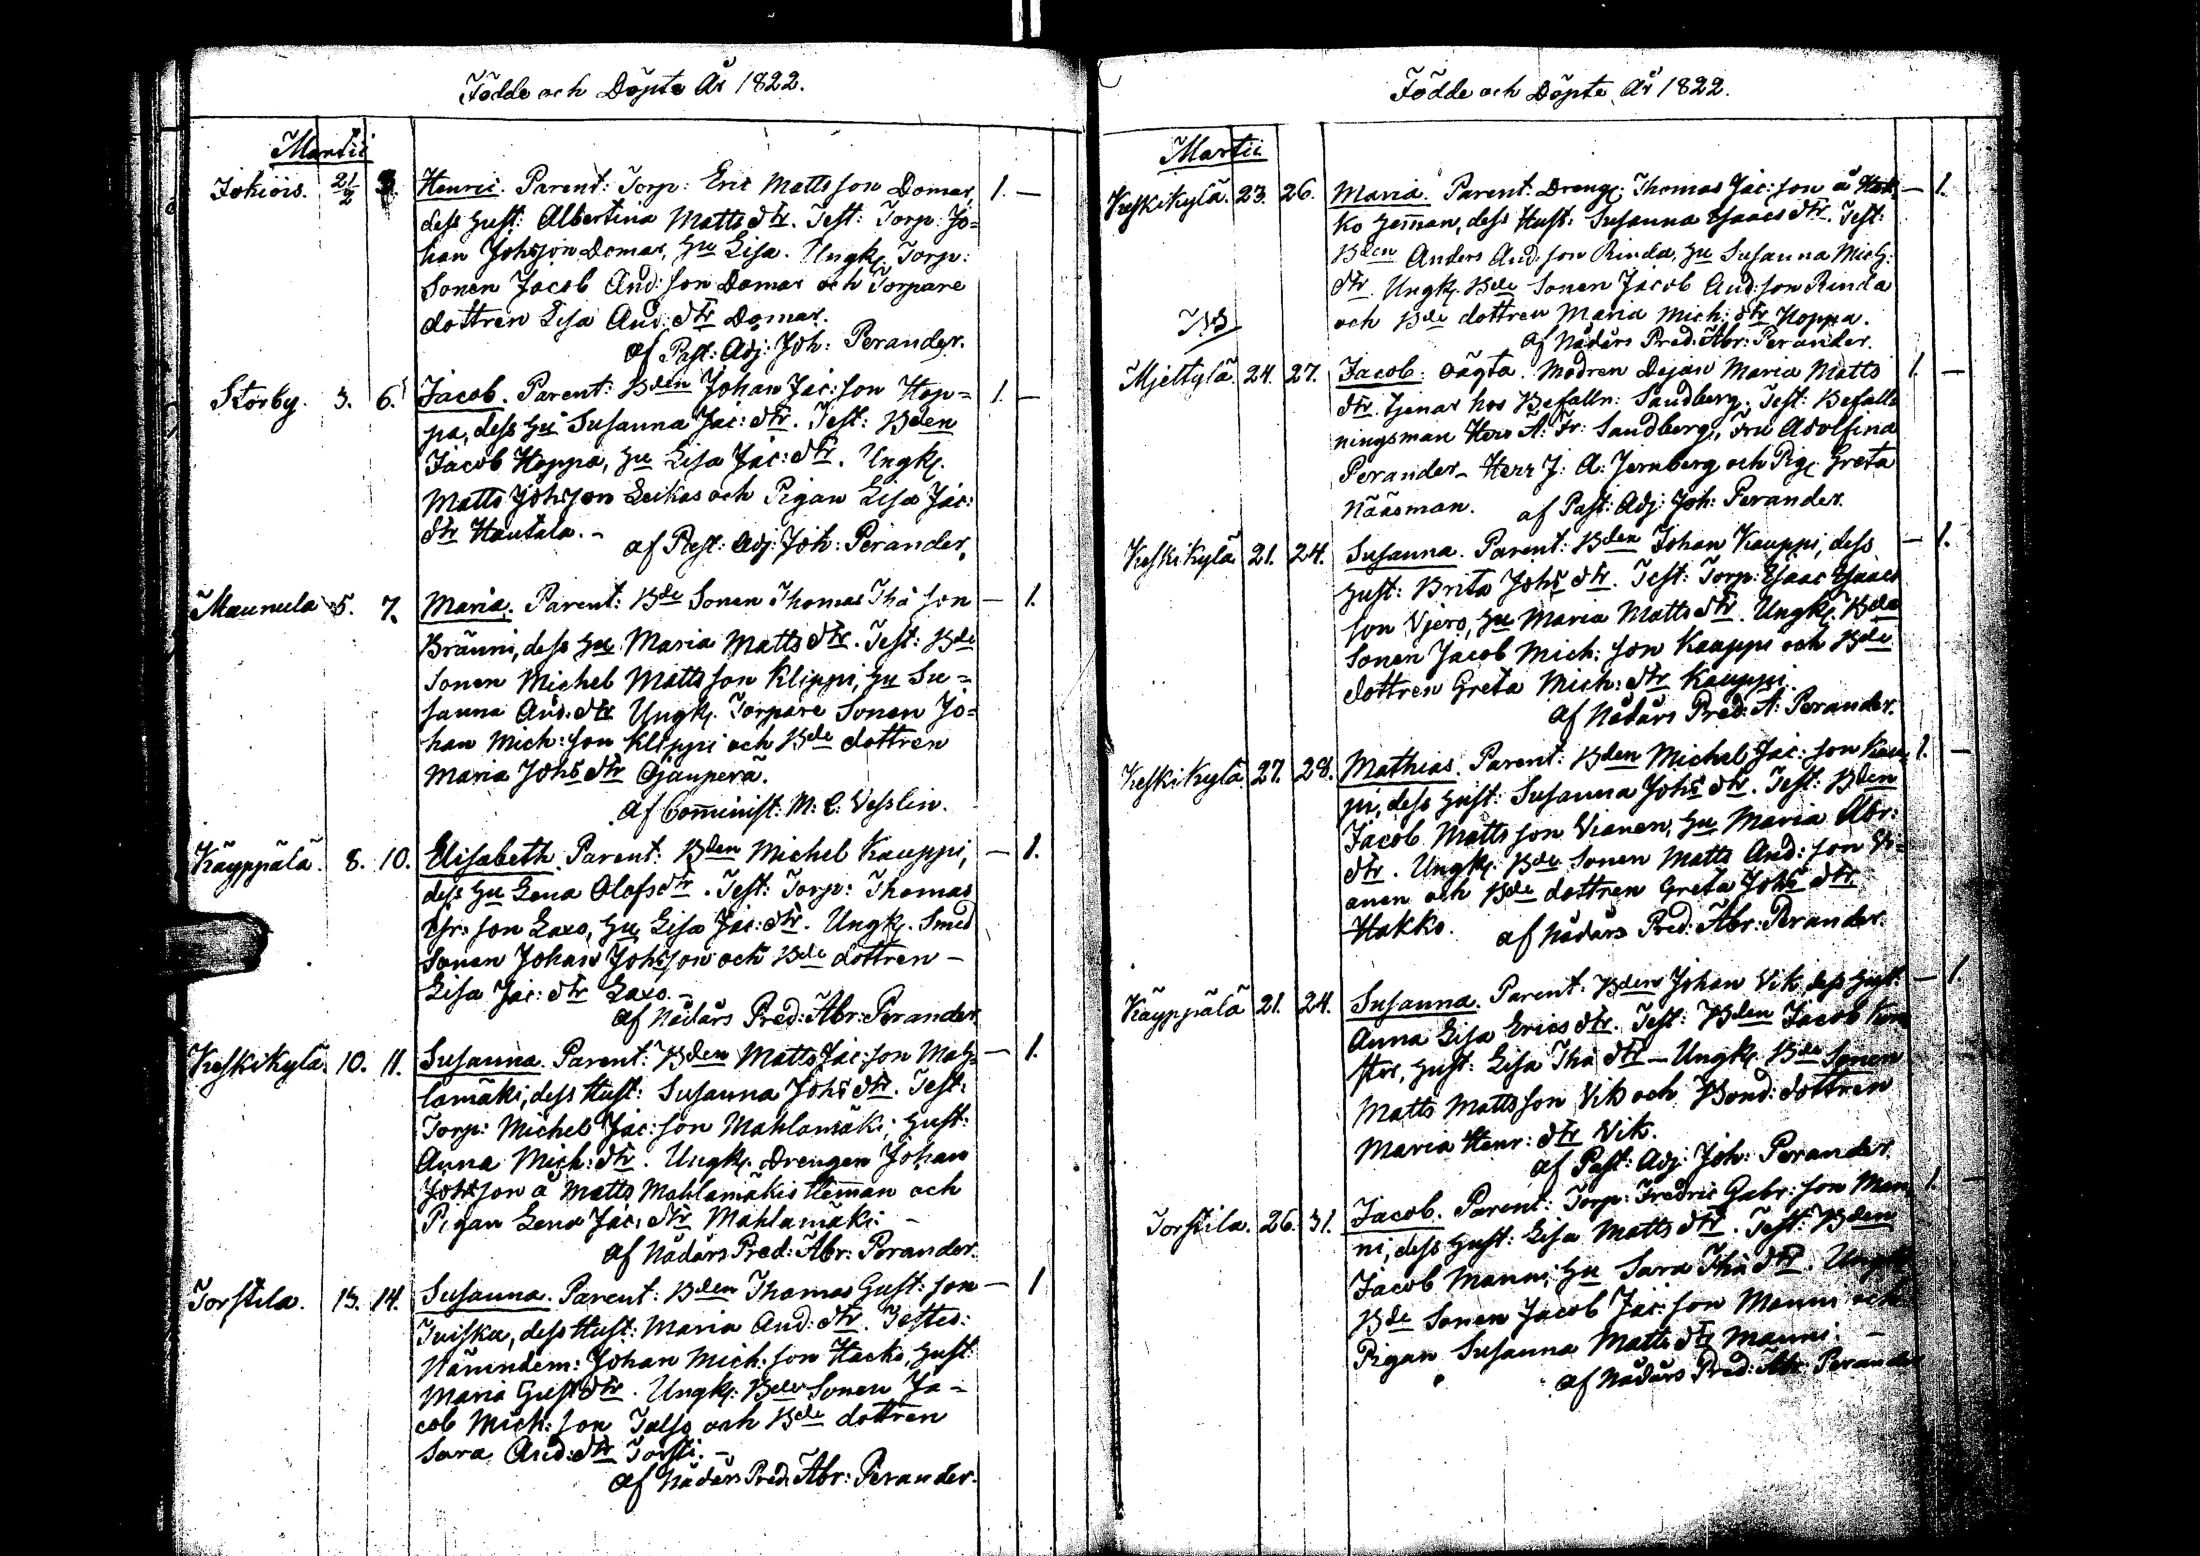 Födde och Döpte År 1822.
Martii
Jokiois. 21/2 3. Henric. Parent: Torp: Eric Mattsson Domar, 1. —
dess Hust: Albertina Mattsdtr. Test: Torp: Jo=
han Johsson Domar, Hu Lisa. Ungk. Torp:
Sonen Jacob And:son Domar och Torpare
dottren Lisa And:dtr Domar.
af Past: Adj: Joh: Perander.
Storby. 3. 6. Jacob. Parent: Bden Johan Jac:son Hop= 1. —
pa, dess Hu Susanna Jac:dtr. Test: Bden
Jacob Hoppa, Hu Lisa Jac:dtr. Ungk.
Matts Johsson Leikas och Pigan Lisa Jac:
dtr Hautala. –
af Past: Adj: Joh: Perander.
Maunula 5. 7. Maria. Parent: Bde Sonen Thomas Thòson — 1.
Bränni, dess Hu Maria Mattsdtr. Test: Bde
Sonen Michel Mattsson Klippi, Hu Su=
sanna And:dtr Ungk. Torpare Sonen Jo=
han Mich:son Klippi och Bde dottren
Maria Johsdtr Ojanperä.
af Cominist: M: C: Vesslin.
Käyppälä. 8. 10. Elisabeth. Parent: Bden Michel Kauppi, — 1.
dess Hu Lena Olofsdtr. Test: Torp: Thomas
son Laxo, Hu Lisa Jac:dtr. Ungk. Smed
Sonen Johan Johsson och Bde dottren –
Lisa Jac:dtr Laxo. –
af Nådårs Pred: Abr: Perander
Keskikylä. 10. 11. Susanna. Parent: Bden Matts Jac:son Mah= — 1.
lamäki, dess Hust: Susanna Johsdtr. Test:
Torp: Michel Jac:son Mahlamäki, Hust:
Anna Mich:dtr. Ungk. Drengen Johan
Johsson å Matts Mahlamäkis Heman och
Pigan Lena Jac:dtr Mahlamäki. –
af Nådårs Pred: Abr: Perander.
Torstila. 13. 14. Susanna. Parent: Bden Thomas Gust:son — 1
Tuisku, dess Hust: Maria And:dtr. Testes:
Nämndem: Johan Mich:son Hacko, Hust:
Maria Gustdtr. Ungk: Bde Sonen Ja=
cob Mich:son och Bde dottren
Sara And:dtr Torsti. –
af Nådårs Pred: Abr: Perander.
Födde och Döpte År 1822.
Martii
Keskikylä. 23. 26. Maria. Parent: Dreng: Thomas Jac:son å Hak — 1.
ko Heman, dess Hust: Susanna Isaacsdtr. Test:
Bden Anders And:son Rinda, Hu Susanna Mich:
dtr. Ungk. Bde Sonen Jacob And:son Rinda
och Bde dottren Maria Mich:dtr Hoppa.
af Nådårs Pred: Abr: Perander.
NB
Mjettylä. 24. 27. Jacob: oägta. Modren Dejan Maria Matts 1. —
dtr. tjenar hos Befalln: Sandberg. Test: Befall
ningsman Herr A: Fr: Sandberg, Fru Adolfina
Perander – Herr J: A: Jernberg och Pig: Greta
Nääsman. af Past: Adj: Joh: Perander.
Keskikylä 21. 24. Susanna. Parent: Bden Johan Kauppi, dess — 1.
Hust: Brita Johsdtr. Test: Torp: Isaac Isaacs
son Vjero, Hu Maria Mattsdtr. Ungk. Bde
Sonen Jacob Mich:son Kauppi och Bde
dottren Greta Mich:dtr Kauppi.
af Nådårs Pred: A: Perander.
Keskikylä 27. 28. Mathias. Parent: Bden Michel Jac:son Kau 1. —
pi, dess Hust: Susanna Johsdtr. Test: Bden
Jacob Mattsson Vianen, Hu Maria Abr:
dtr. Ungk. Bde Sonen Matts And:son Vi=
anen och Bde dottren Greta Johsdtr
Hakko. af Nådårs Pred: Abr: Perander.
Käyppälä 21. 24. Susanna. Parent: Bden Johan Vik dess Hust: — 1.
Anna Lisa Ericsdtr. Test: Bden Jacob
Hust: Lisa Thòdtr – Ungk. Bde Sonen
Matts Mattsson Vik och Bond: dottren
Maria Henr:dtr Vik.
af Past: Adj: Joh: Perander.
Torstila. 26. 31. Jacob. Parent: Torp: Fredric Gabr:son Man 1. —
ni, dess Hust: Lisa Mattsdtr. Test: Bden
Jacob Manni, Hu Sara Thòdtr. Ungk
Bde Sonen Jacob Jac:son Manni och
Pigan Susanna Mattsdtr Manni. –
af Nådårs Pred: Abr: Perander